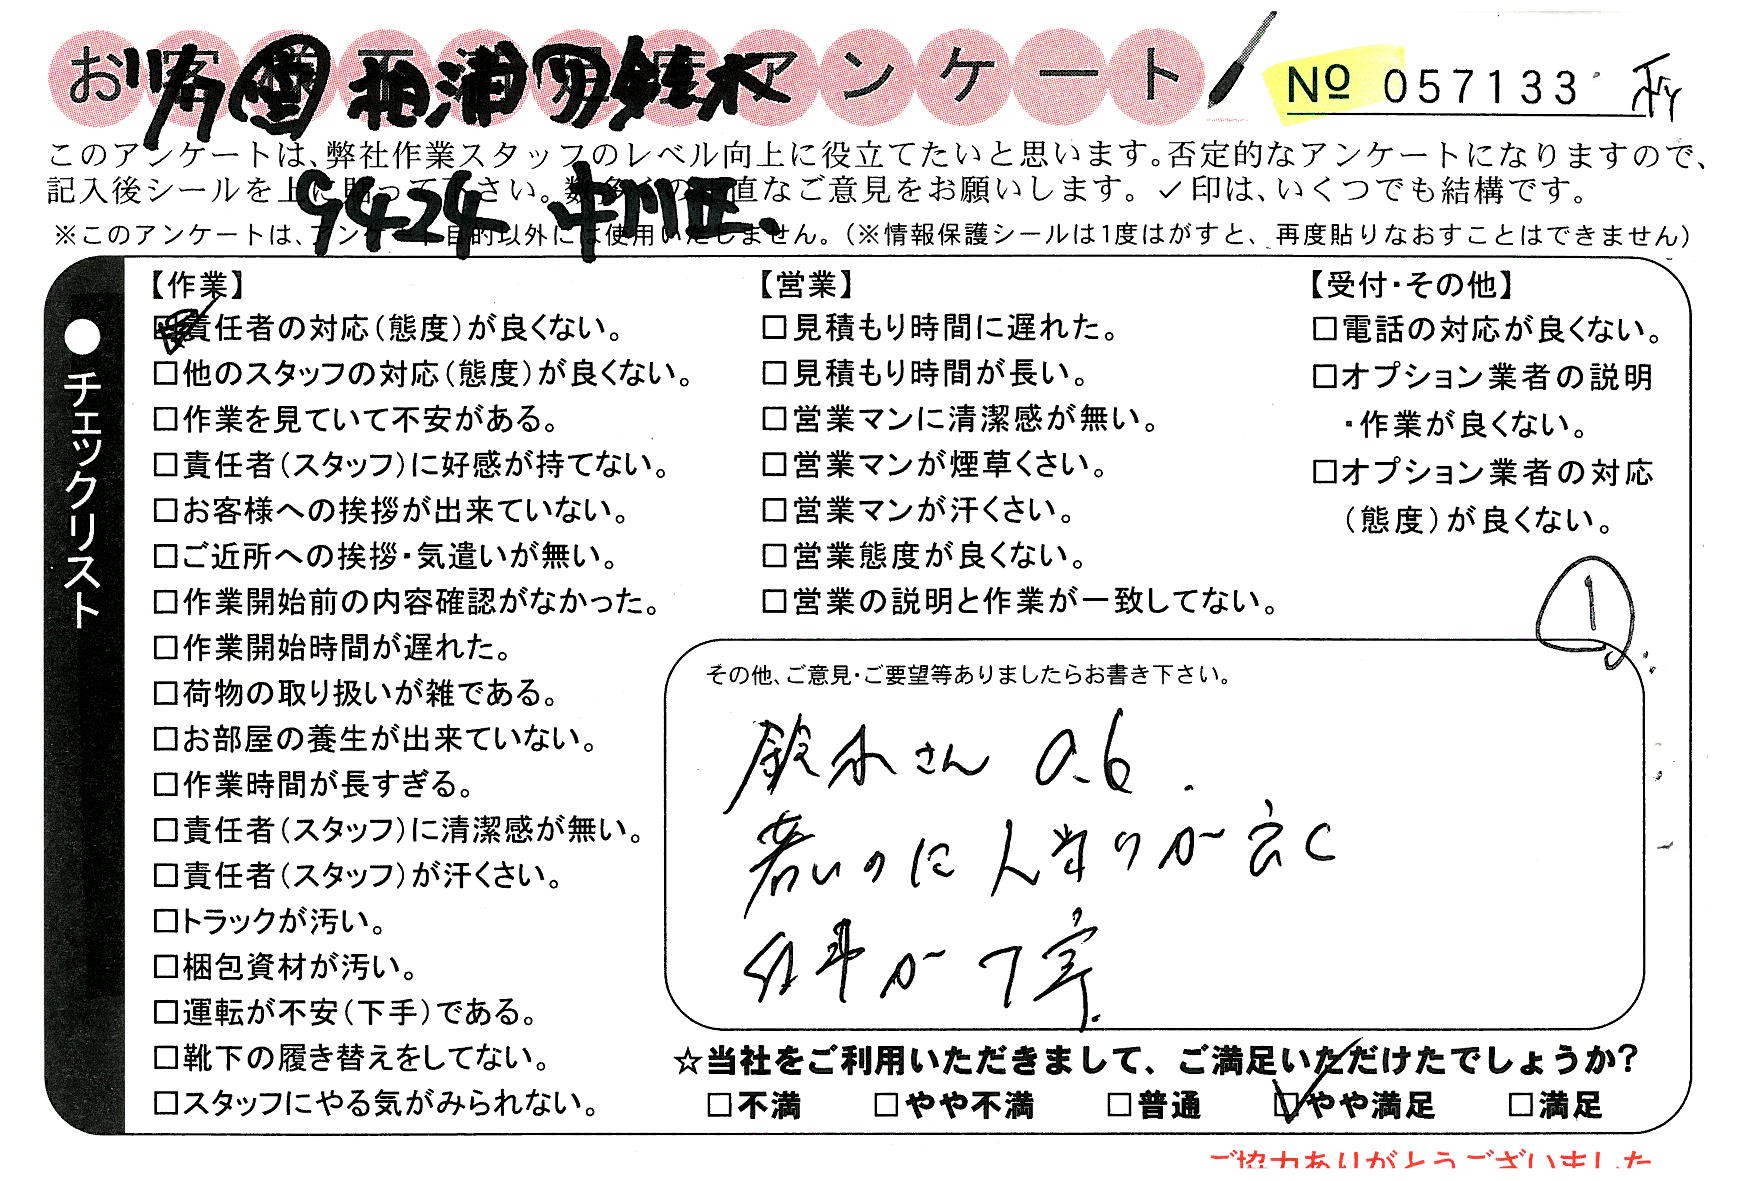 お客様満足度アンケート
No 057133
9424 中川正.
このアンケートは、弊社作業スタッフのレベル向上に役立てたいと思います。否定的なアンケートになりますので、
記入後シールを上に貼って下さい。数多くの正直なご意見をお願いします。✓印は、いくつでも結構です。
※このアンケートは、アンケート目的以外には使用いたしません。(※情報保護シールは1度はがすと、再度貼りなおすことはできません)
●チェックリスト
【作業】
□責任者の対応(態度)が良くない。
□他のスタッフの対応(態度)が良くない。
□作業を見ていて不安がある。
□責任者(スタッフ)に好感が持てない。
□お客様への挨拶が出来ていない。
□ご近所への挨拶・気遣いが無い。
□作業開始前の内容確認がなかった。
□作業開始時間が遅れた。
□荷物の取り扱いが雑である。
□お部屋の養生が出来ていない。
□作業時間が長すぎる。
□責任者(スタッフ)に清潔感が無い。
□責任者(スタッフ)が汗くさい。
□トラックが汚い。
□梱包資材が汚い。
□運転が不安(下手)である。
□靴下の履き替えをしてない。
□スタッフにやる気がみられない。
【営業】
□見積もり時間に遅れた。
□見積もり時間が長い。
□営業マンに清潔感が無い。
□営業マンが煙草くさい。
□営業マンが汗くさい。
□営業態度が良くない。
□営業の説明と作業が一致してない。
【受付・その他】
□電話の対応が良くない。
□オプション業者の説明
・作業が良くない。
□オプション業者の対応
(態度)が良くない。
1
その他、ご意見・ご要望等ありましたらお書き下さい。
鈴木さん
若いのに人当りが良く
仕事が丁寧.
☆当社をご利用いただきまして、ご満足いただけたでしょうか?
□不満 □やや不満 □普通 ☑やや満足 □満足
ご協力ありがとうございました